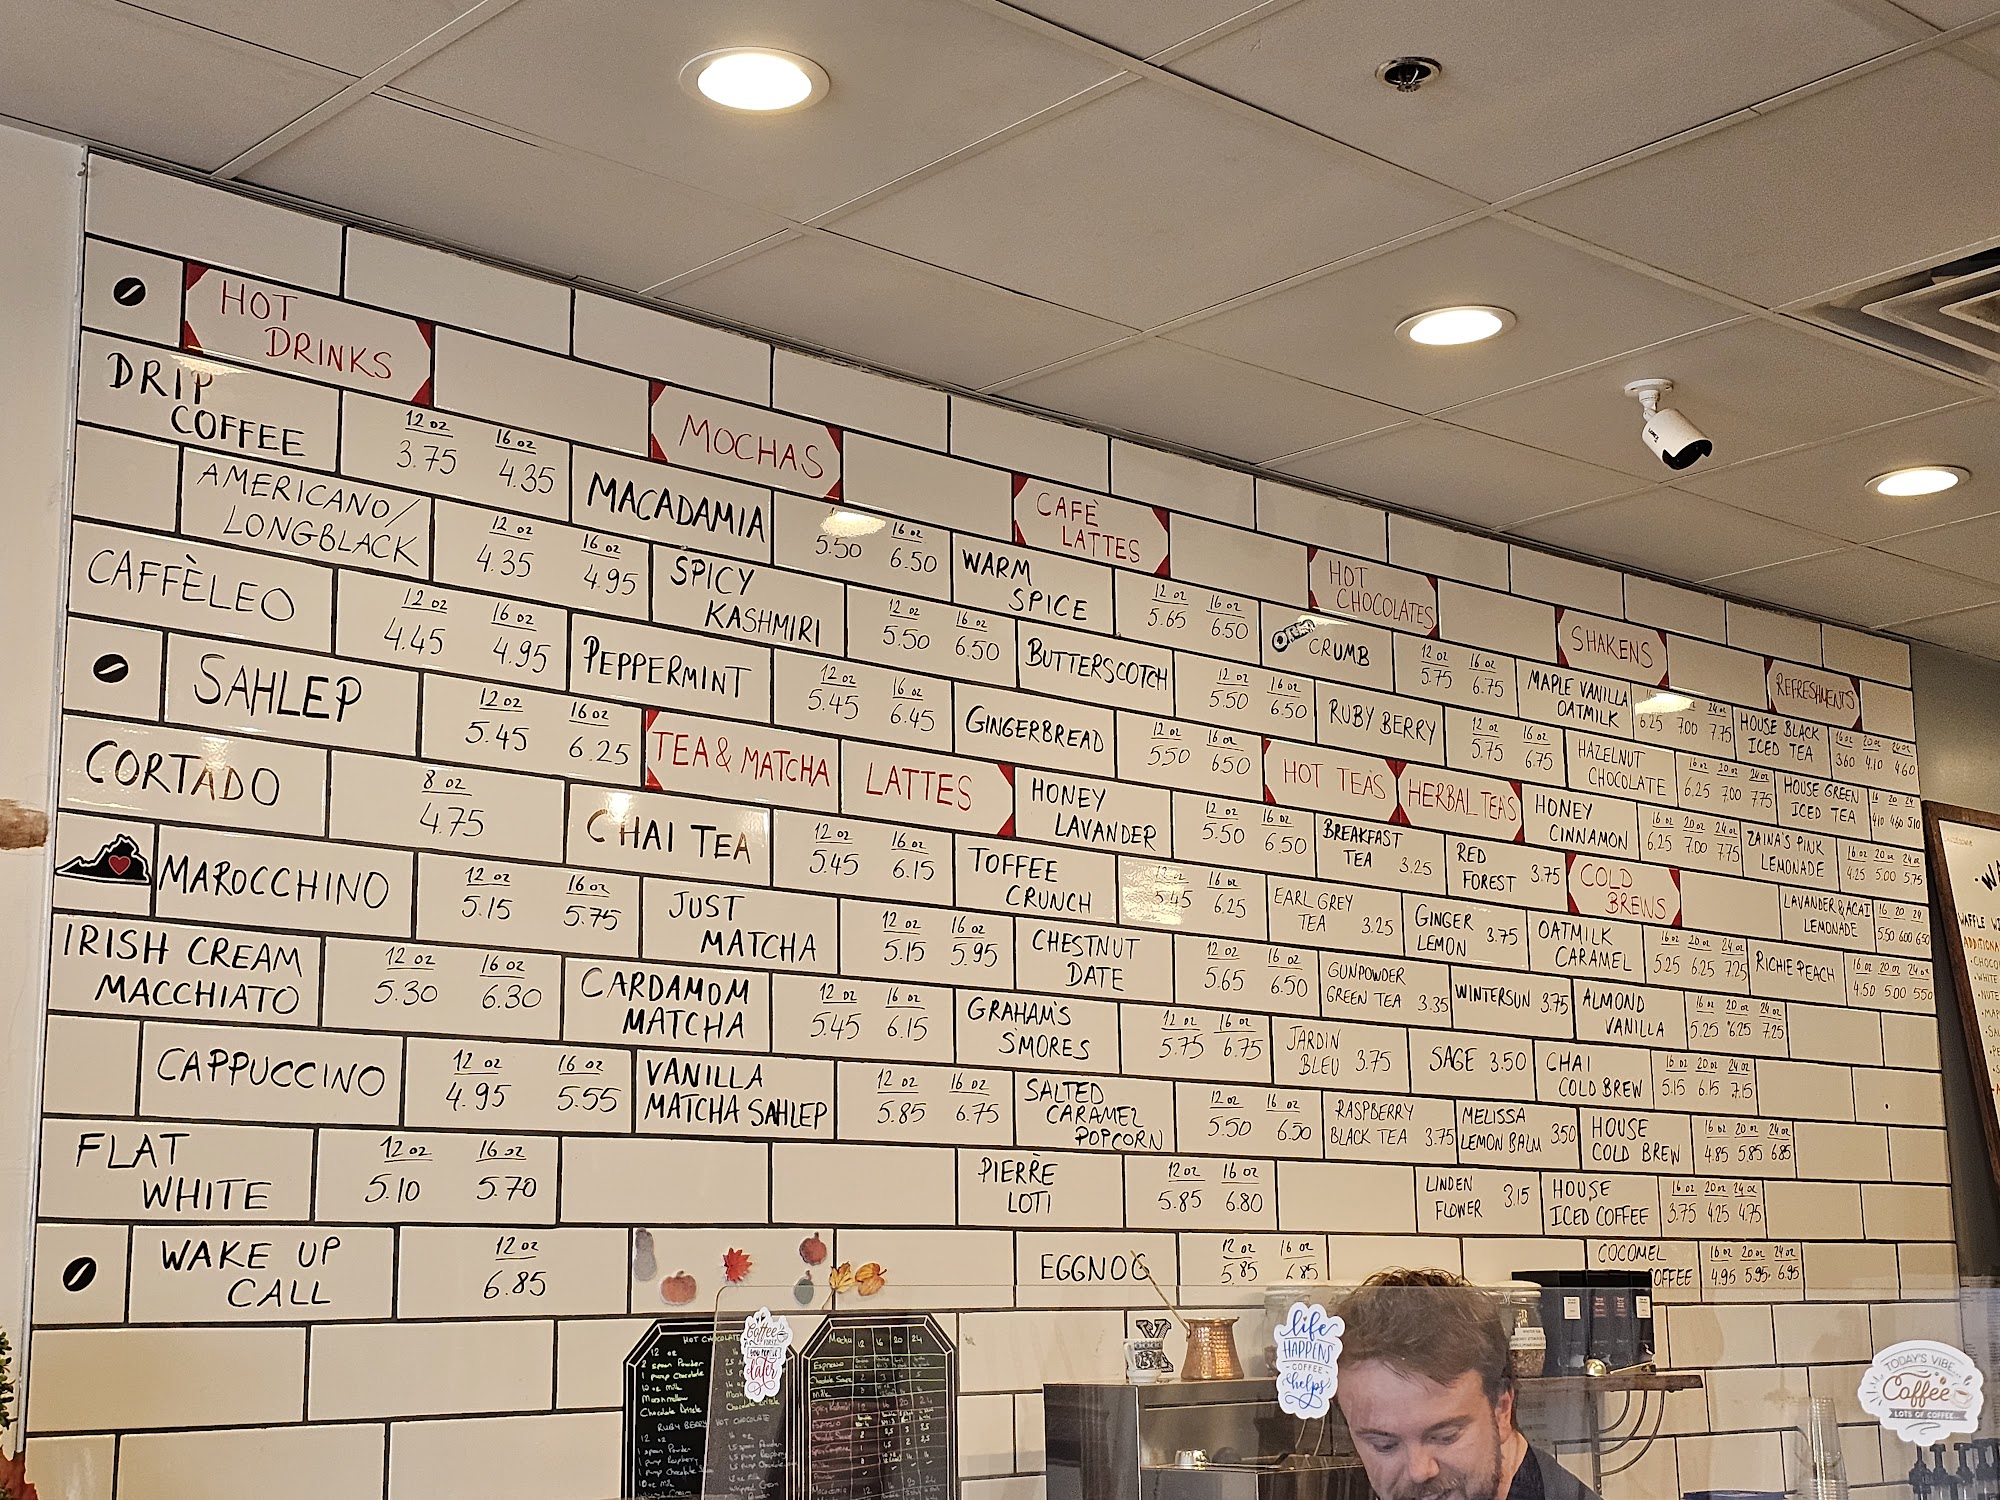 HOT
DRINKS
DRIP
COFFEE
12 oz 16 oz
3.75 4.35
AMERICANO/
LONGBLACK
12 oz 16 oz
4.35 4.95
CAFFÈLEO
12 oz 16 oz
4.45 4.95
SAHLEP
12 oz 16 oz
5.45 6.25
CORTADO
8 oz
4.75
MAROCCHINO
12 oz 16 oz
5.15 5.75
IRISH CREAM
MACCHIATO
12 oz 16 oz
5.30 6.30
CAPPUCCINO
12 oz 16 oz
4.95 5.55
FLAT
WHITE
12 oz 16 oz
5.10 5.70
WAKE UP
CALL
12 oz
6.85
MOCHAS
MACADAMIA
16 oz
5.50 6.50
SPICY
KASHMIRI
12 oz 16 oz
5.50 6.50
PEPPERMINT
12 oz 16 oz
5.45 6.45
TEA & MATCHA LATTES
CHAI TEA
12 oz 16 oz
5.45 6.15
JUST
MATCHA
12 oz 16 oz
5.15 5.95
CARDAMOM
MATCHA
12 oz 16 oz
5.45 6.15
VANILLA
MATCHA SAHLEP
12 oz 16 oz
5.85 6.75
CAFÈ
LATTES
WARM
SPICE
12 oz 16 oz
5.65 6.50
BUTTERSCOTCH
12 oz 16 oz
5.50 6.50
GINGERBREAD
12 oz 16 oz
5.50 6.50
HONEY
LAVANDER
12 oz 16 oz
5.50 6.50
TOFFEE
CRUNCH
12 oz 16 oz
5.45 6.25
CHESTNUT
DATE
12 oz 16 oz
5.65 6.50
GRAHAM'S
S'MORES
12 oz 16 oz
5.75 6.75
SALTED
CARAMEL
POPCORN
12 oz 16 oz
5.50 6.50
PIERRE
LOTI
12 oz 16 oz
5.85 6.80
EGGNOG
12 oz 16 oz
5.85 6.85
HOT
CHOCOLATES
OREO CRUMB
12 oz 16 oz
5.75 6.75
RUBY BERRY
12 oz 16 oz
5.75 6.75
HOT TEA'S
BREAKFAST
TEA 3.25
EARL GREY
TEA 3.25
GUNPOWDER
GREEN TEA 3.35
JARDIN
BLEU 3.75
RASPBERRY
BLACK TEA 3.75
HERBAL TEAS
RED
FOREST 3.75
GINGER
LEMON 3.75
WINTERSUN 3.75
SAGE 3.50
MELISSA
LEMON BALM 3.50
LINDEN
FLOWER 3.15
SHAKENS
MAPLE VANILLA
OATMILK
24 oz
6.25 7.00 7.75
HAZELNUT
CHOCOLATE
16 oz 20 oz 24 oz
6.25 7.00 7.75
HONEY
CINNAMON
16 oz 20 oz 24 oz
6.25 7.00 7.75
COLD
BREWS
OATMILK
CARAMEL
16 oz 20 oz 24 oz
5.25 6.25 7.25
ALMOND
VANILLA
16 oz 20 oz 24 oz
5.25 6.25 7.25
CHAI
COLD BREW
16 oz 20 oz 24 oz
5.15 6.15 7.15
HOUSE
COLD BREW
16 oz 20 oz 24 oz
4.85 5.85 6.85
HOUSE
ICED COFFEE
16 oz 20 oz 24 oz
3.75 4.25 4.75
COCOMEL
OFFEE
16 oz 20 oz 24 oz
4.95 5.95 6.95
REFRESHMENTS
HOUSE BLACK
ICED TEA
16 oz 20 oz 24 oz
3.60 4.10 4.60
HOUSE GREEN
ICED TEA
16 20 24
4.10 4.60 5.10
ZAINA'S PINK
LEMONADE
16 oz 20 oz 24 oz
4.25 5.00 5.75
LAVANDER & ACAI
LEMONADE
16 20 24
5.50 6.00 6.50
RICHIE PEACH
16 oz 20 oz 24 oz
4.50 5.00 5.50
HOT CHOCOLATE
12 oz
2 spoon Powder
1 pump Chocolate
10 oz Milk
Marshmallow
Chocolate Drizzle
RUBY BERRY HOT CHOCOLATE
12 oz
1 spoon Powder
1 pump Raspberry
Mocha 12 16 20 24
Espresso
Chocolate Sauce
Milk
Coffee
later
life
HAPPENS
COFFEE
helps
TODAY'S VIBE
Coffee
LOTS OF COFFEE